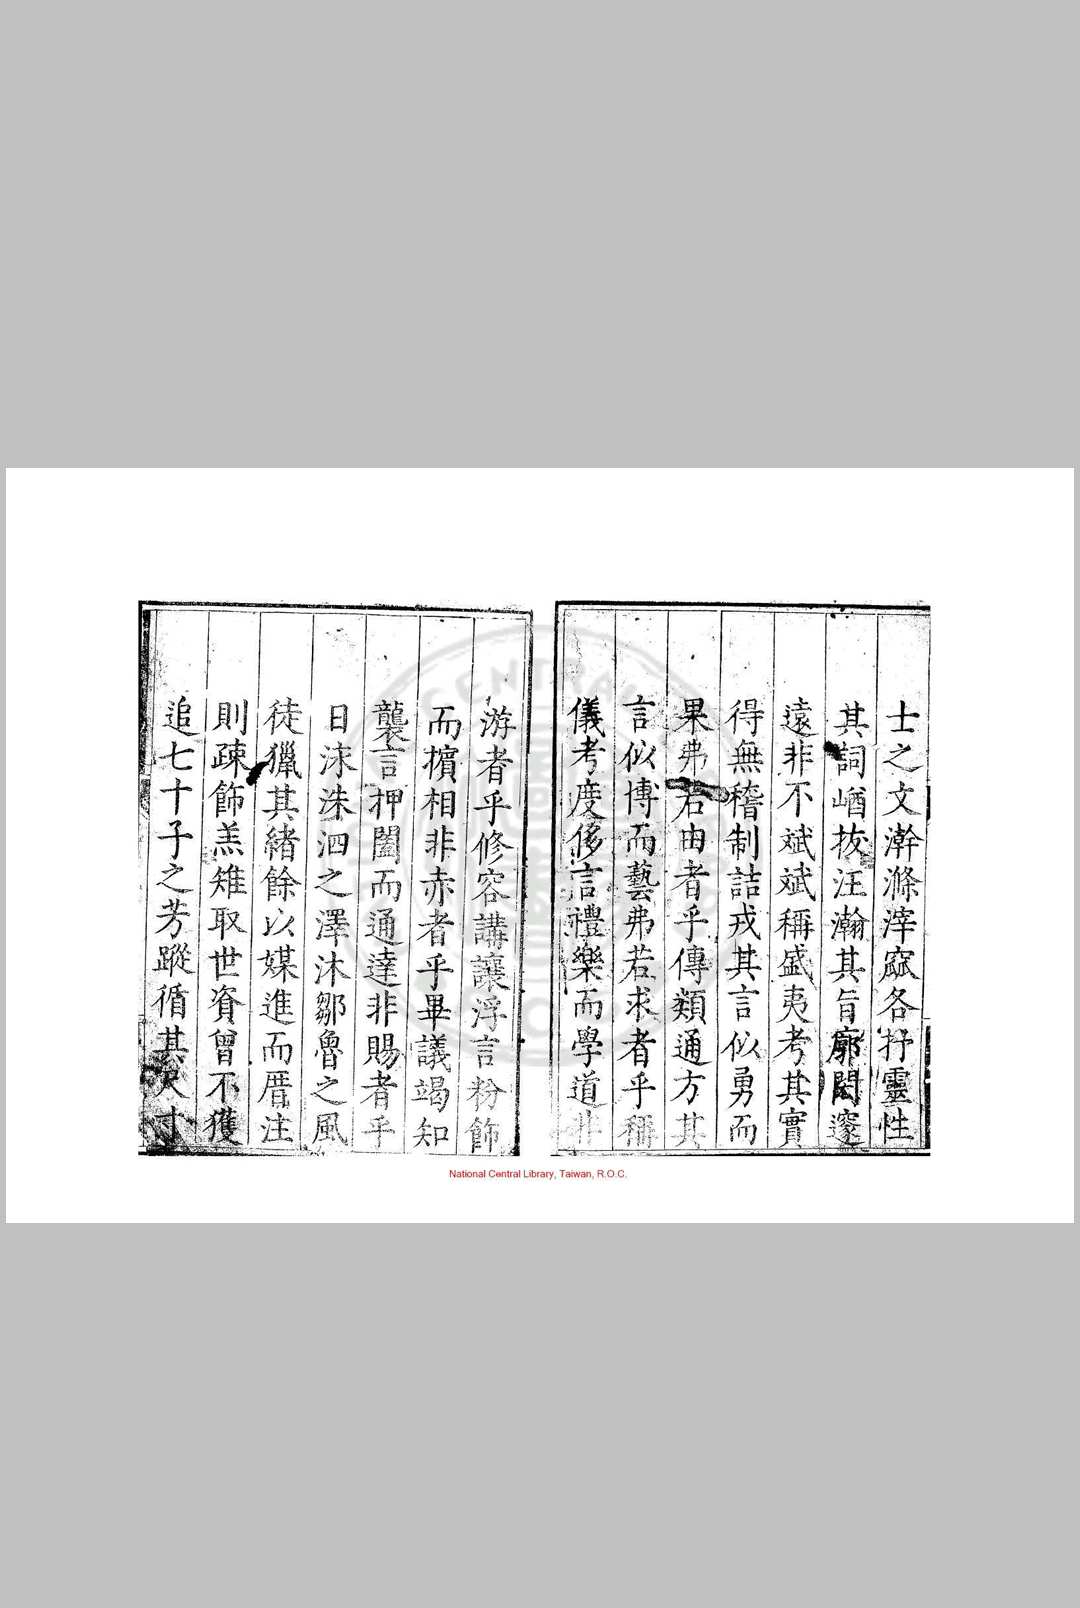 士之文澣滌滓窳各抒靈性
其詞崷拔汪瀚其旨廓閎邃
遠非不斌斌稱盛夷考其實
得無稽制詰戎其言似勇而
果弗若由者乎傳類通方其
言似博而藝弗若求者乎稱
儀考度侈言禮樂而學道非
游者乎修容講讓浮言粉飾
而擯相非赤者乎畢議竭知
襲言押闔而通達非賜者乎
日洙泗之澤沐鄒魯之風
徒獵其緒餘以媒進而厝注
則疎飾羔雉取世資曾不獲
追七十子之芳蹤循其尺寸
National Central Library, Taiwan, R.O.C.